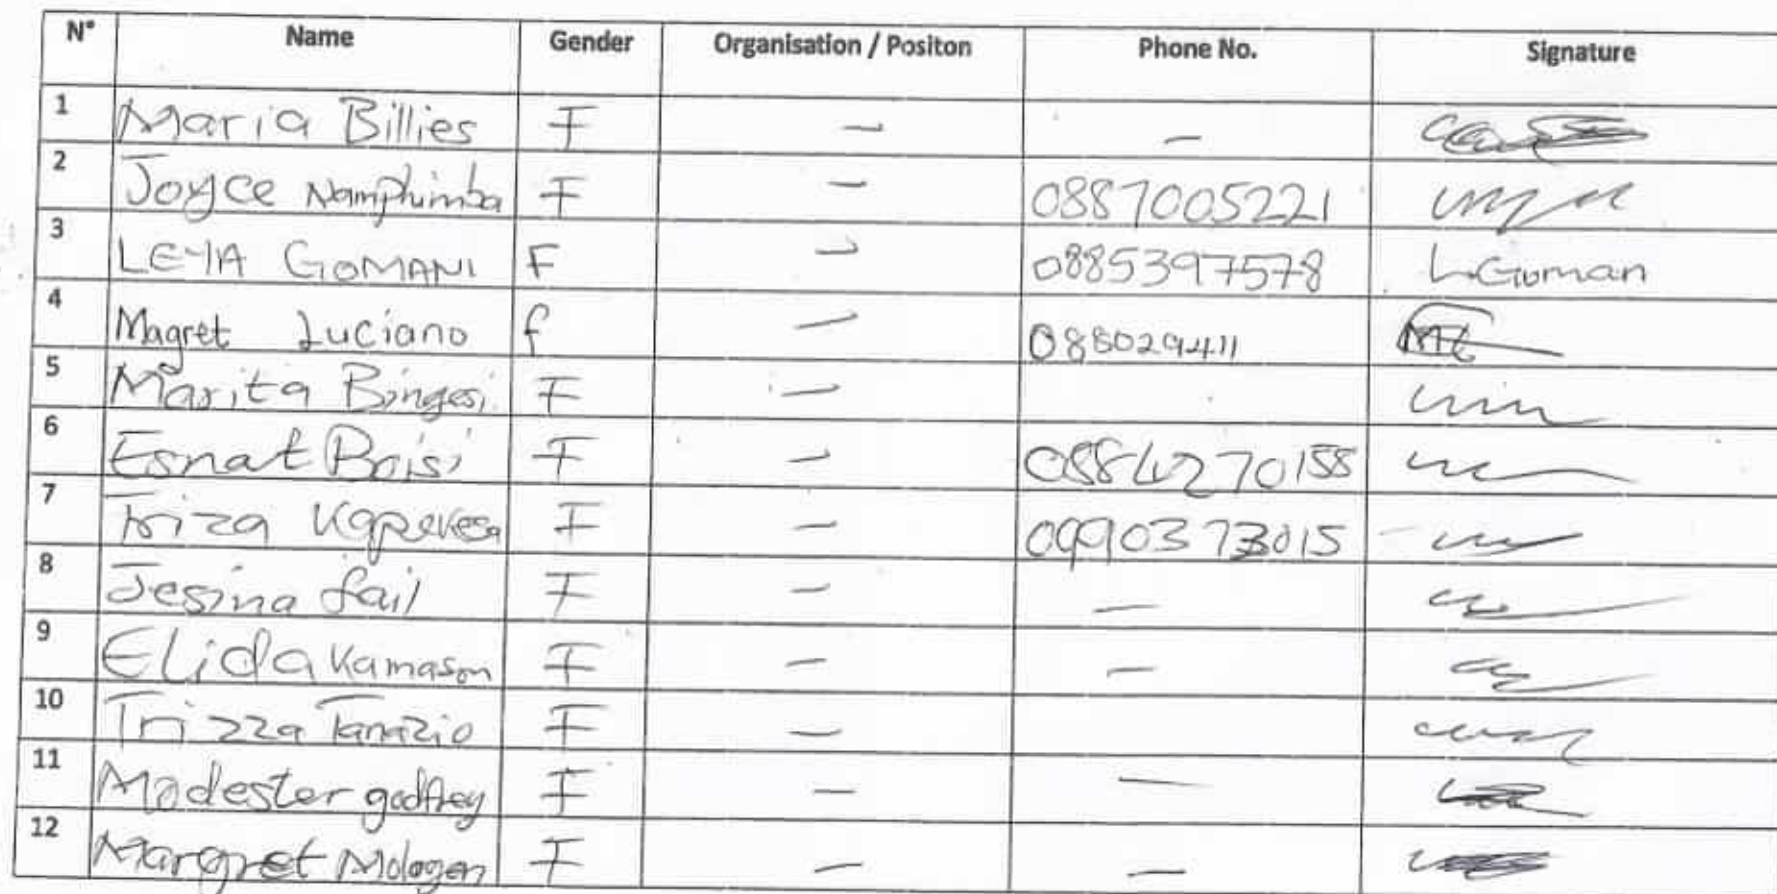 N° Name Gender Organisation / Positon Phone No. Signature
1 Maria Billies F – –
2 Joyce Namphimba F – 0887005221
3 LEYA GOMANI F – 0885397578 L.Goman
4 Magret Luciano f – 088029411
5 Marita Bingesi F –
6 Esnat Boisi F – 0884270158
7 Triza Kapekesa F – 0990373015
8 Jesina fail F – –
9 Elida Kamason F – –
10 Trizza Tanazio F –
11 Modester godfrey F – –
12 Margret Mologen F – –